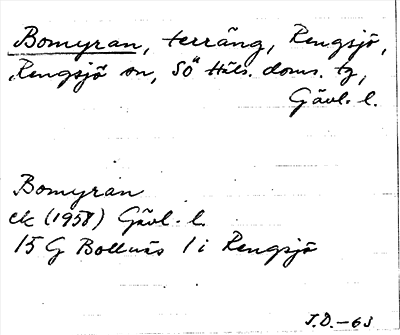 Bomyran, terräng, Rengsjö,
Rengsjö sn, Sö Häls. doms. tg,
Gävl. l.
Bomyran
ek (1958) Gävl. l.
15 G Bollnäs 1 i Rengsjö
J.D.-63